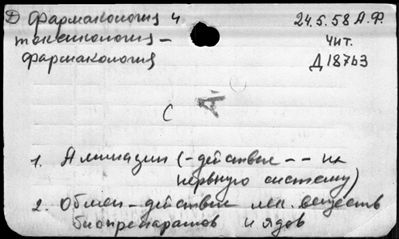 Д Фармакология и
токсикология -
фармакология
24.5.58 А.Ф.
Чит.
Д18763
С
А-
1. Аминазин (-действие -- на
нервную систему)
2. Обмен - действие лек. веществ
биопрепаратов и ядов